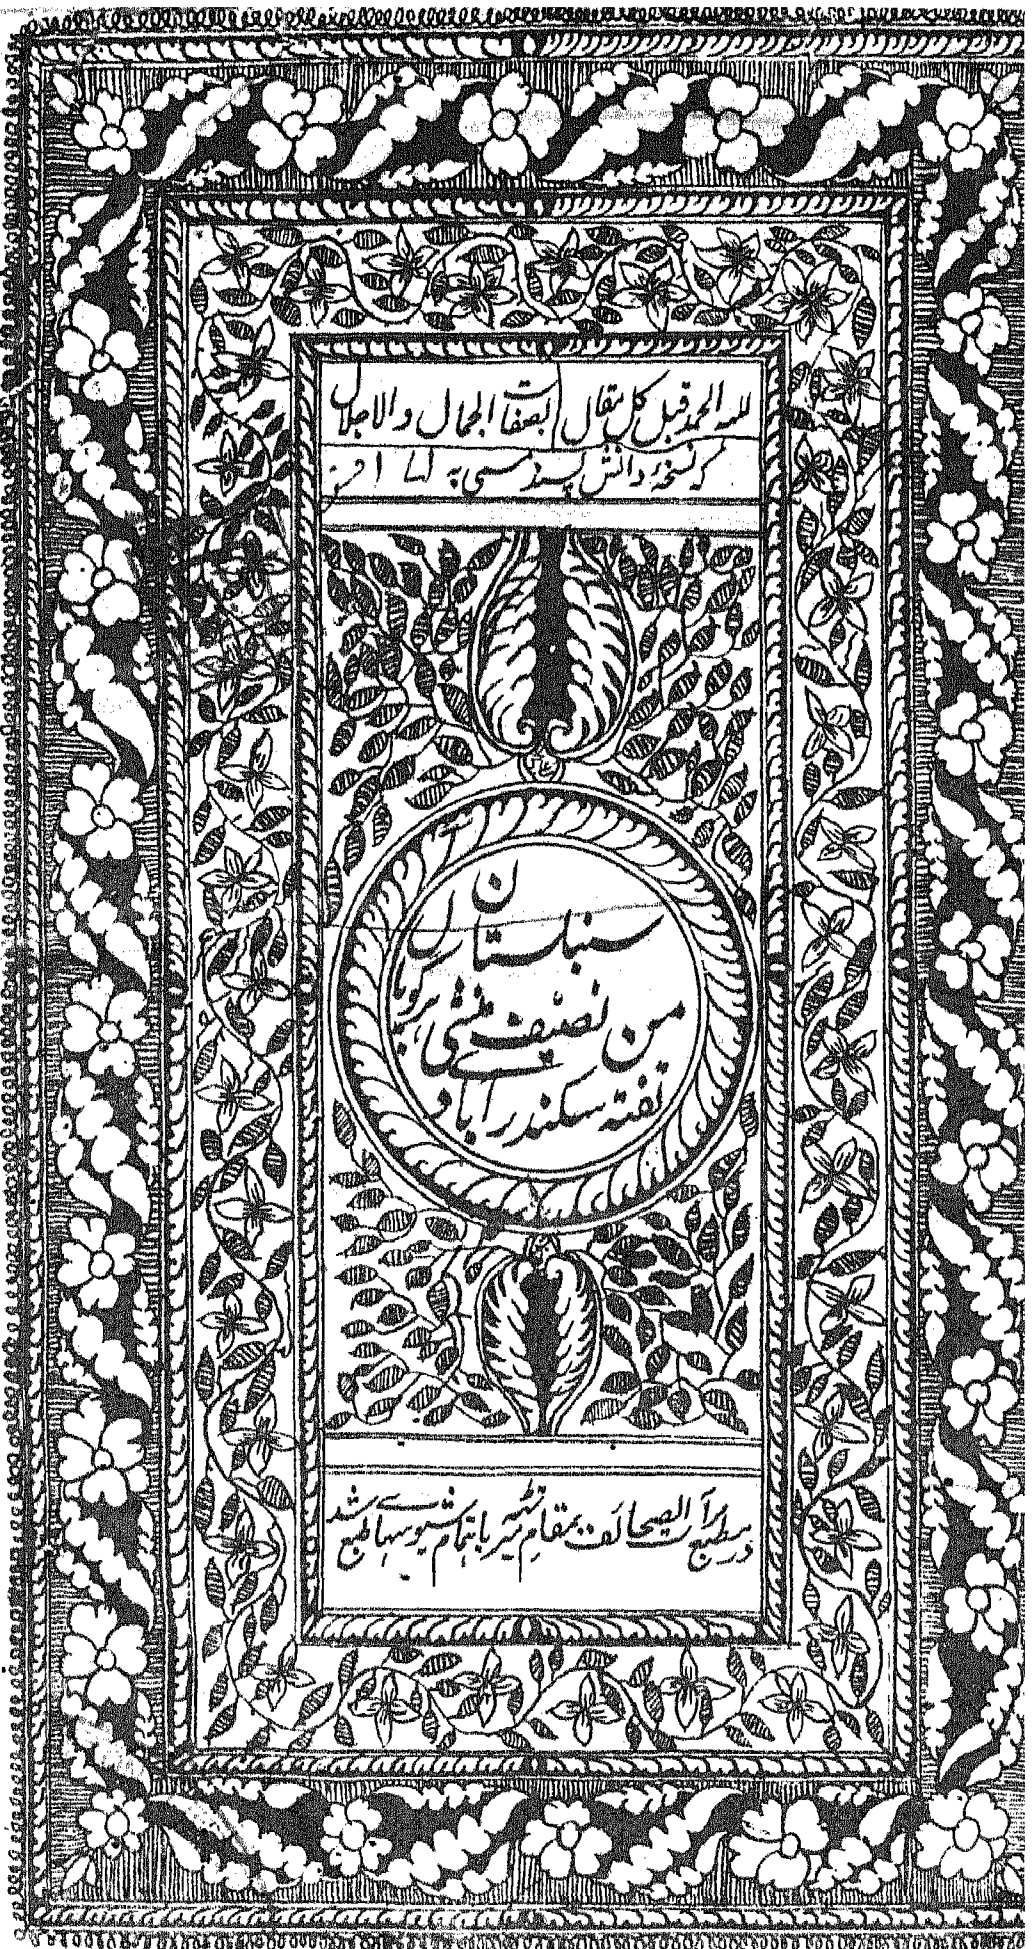 لله الحمد قبل كل مقال بصفات الجمال والاجلال
كه نسخۂ دانش پسند مسمی به
سنبلستان
من تصنیف منشی هرگوپال
تفته سکندرآباد
در مطبع مرآت الصحائف بمقام میرٹهه باهتمام شیوسهای طبع شد